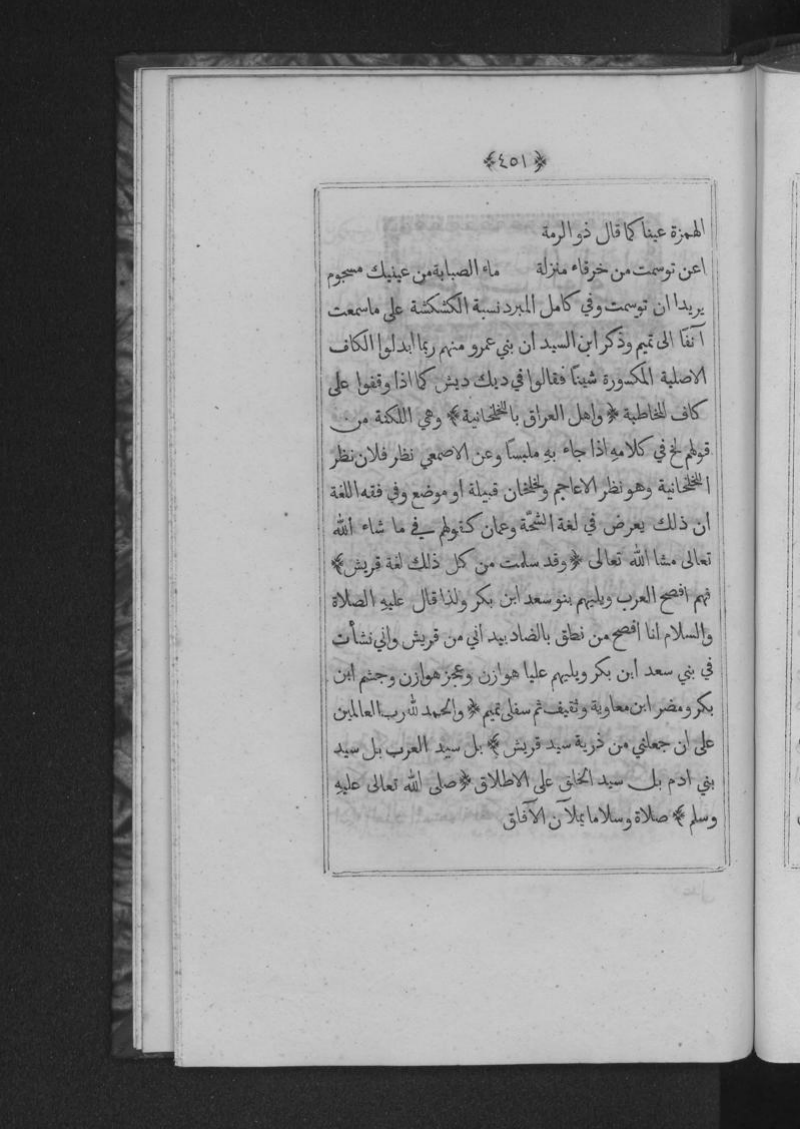 ﴿٤٥١﴾
الهمزة عينا كما قال ذو الرمة
اعن توسمت من خرقاء منزلة ماء الصبابة من عينيك مسجوم
يريد ا ان توسمت وفي كامل المبرد نسبة الكشكشة على ما سمعت
آنفا الى تميم وذكر ابن السيد ان بني عمرو منهم ربما ابدلوا الكاف
الاصلية المكسورة شينا فقالوا في ديك ديش كما اذا وقفوا على
كاف المخاطبة ﴿واهل العراق باللخلخانية﴾ وهي اللكنة من
قولهم لخ في كلامهِ اذا جاء بهِ ملبسا وعن الاصمعي نظر فلان نظر
اللخلخانية وهو نظر الاعاجم ولخلخان قبيلة او موضع وفي فقه اللغة
ان ذلك يعرض في لغة الشحّة وعمان كقولهم في ما شاء الله
تعالى مشا الله تعالى ﴿وقد سلمت من كل ذلك لغة قريش﴾
فهم افصح العرب ويليهم بنو سعد ابن بكر ولذا قال عليهِ الصلاة
والسلام انا افصح من نطق بالضاد بيد اني من قريش واني نشأت
في بني سعد ابن بكر ويليهم عليا هوازن وعجز هوازن وجشم ابن
بكر ومضر ابن معاوية وثقيف ثم سفلى تميم ﴿والحمد لله رب العالمين
على ان جعلني من ذرية سيد قريش﴾ بل سيد العرب بل سيد
بني ادم بل سيد الخلق على الاطلاق ﴿صلى الله تعالى عليهِ
وسلم﴾ صلاة وسلاما يملآن الآفاق